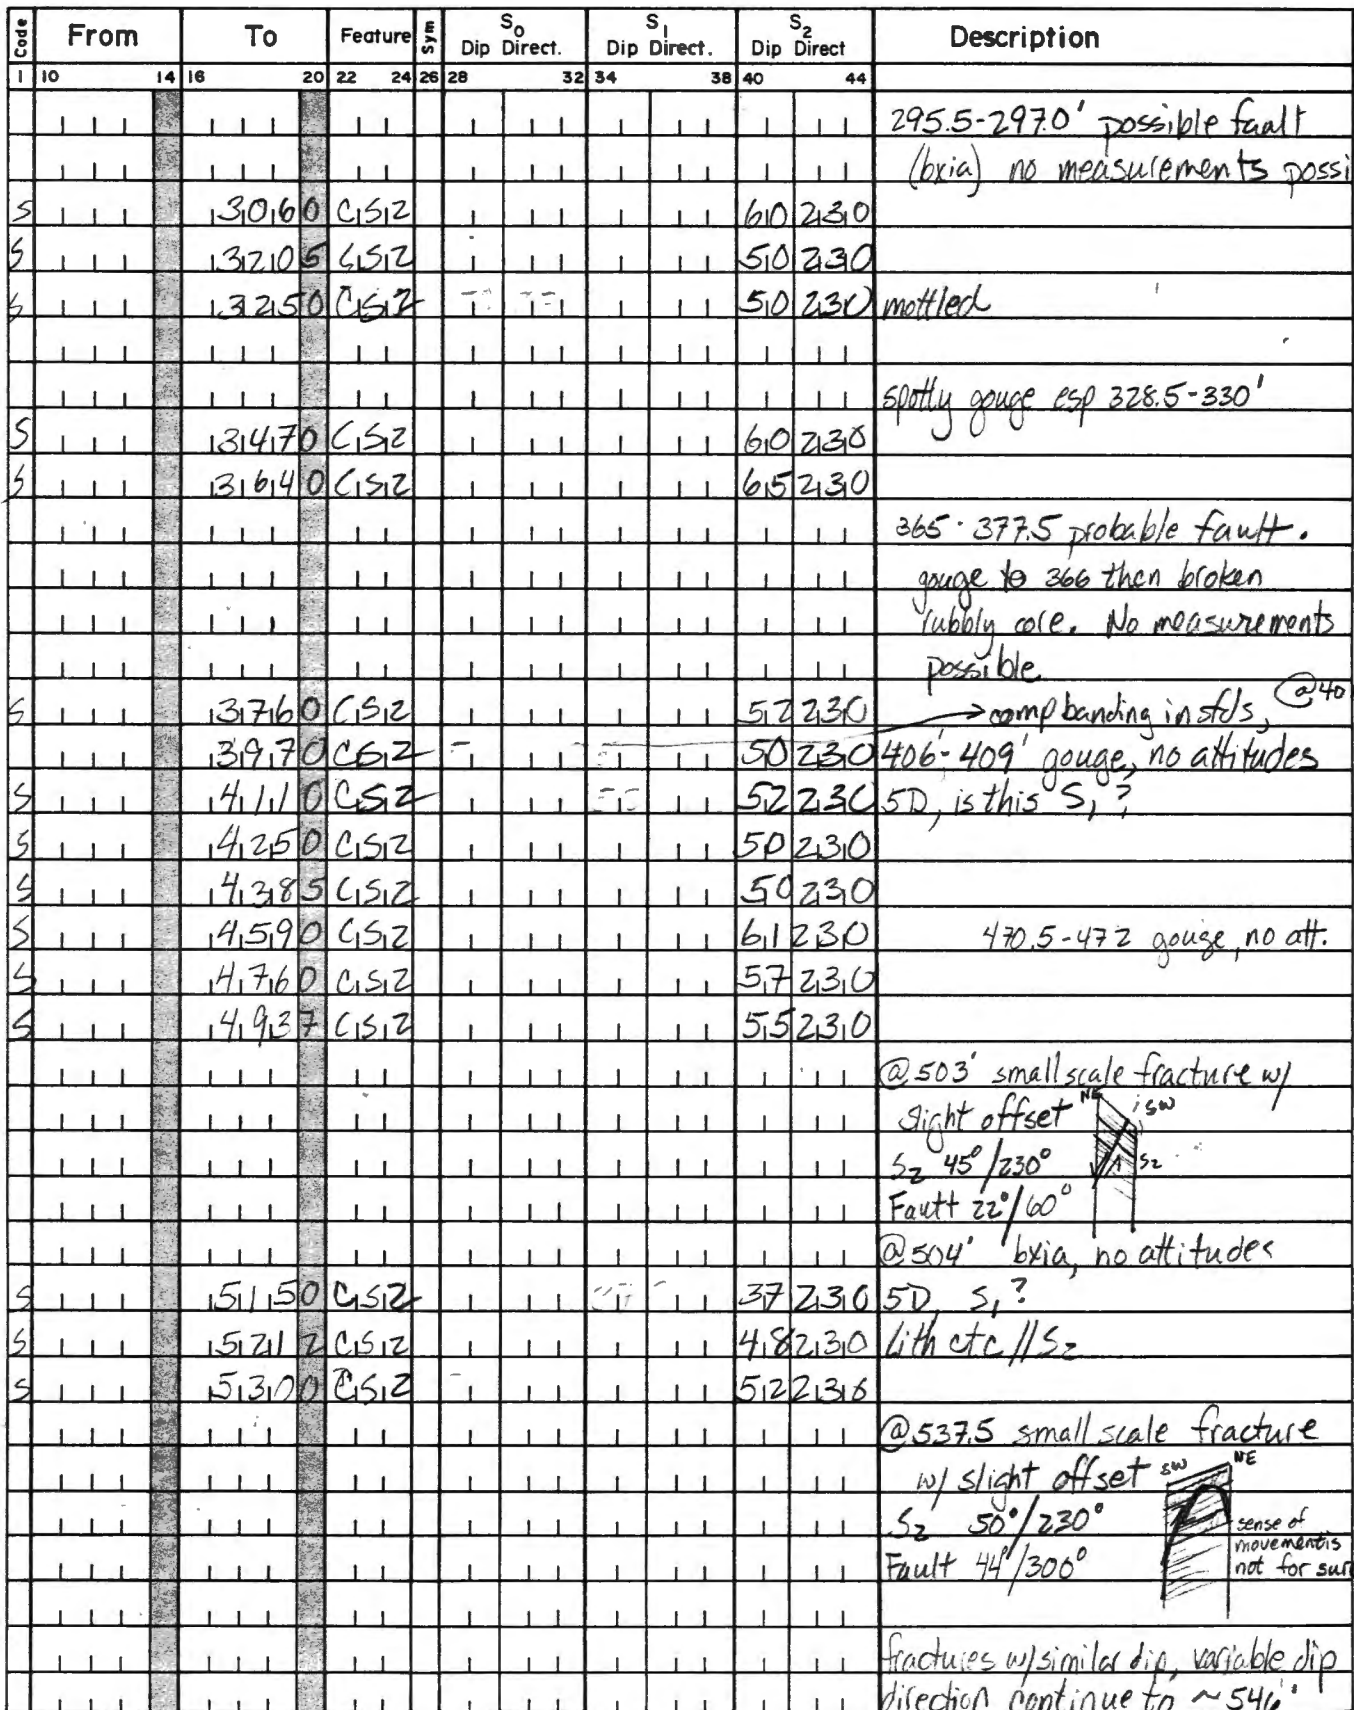 Code From To Feature Sym S0 Dip Direct. S1 Dip Direct. S2 Dip Direct Description
1 10 14 16 20 22 24 26 28 32 34 38 40 44
295.5-297.0' possible fault
(bxia) no measurements possi
S 3060 CS2 60 230
S 3205 CS2 50 230
S 3250 CS2 50 230 mottled
spotty gouge esp 328.5-330'
S 3470 CS2 60 230
S 3640 CS2 65 230
365-377.5 probable fault.
gouge to 366 then broken
rubbly core. No measurements
possible
S 3760 CS2 52 230 → comp banding in sfds, @40
3970 CS2 50 230 406-409' gouge, no attitudes
S 4110 CS2 52 230 5D, is this S1?
S 4250 CS2 50 230
S 4385 CS2 50 230
S 4590 CS2 61 230 470.5-472 gouge, no att.
S 4760 CS2 57 230
S 4937 CS2 55 230
@503' small scale fracture w/
slight offset NE SW
S2 45°/230° S2
Fault 22°/60°
@504' bxia, no attitudes
S 5150 CS2 37 230 5D, S1?
S 5212 CS2 48 230 Lith ctc // S2
S 5300 CS2 52 230
@537.5 small scale fracture
w/ slight offset SW NE
S2 50°/230° sense of
movement is
Fault 44°/300° not for sur
fractures w/ similar dip, variable dip
direction continue to ~546'